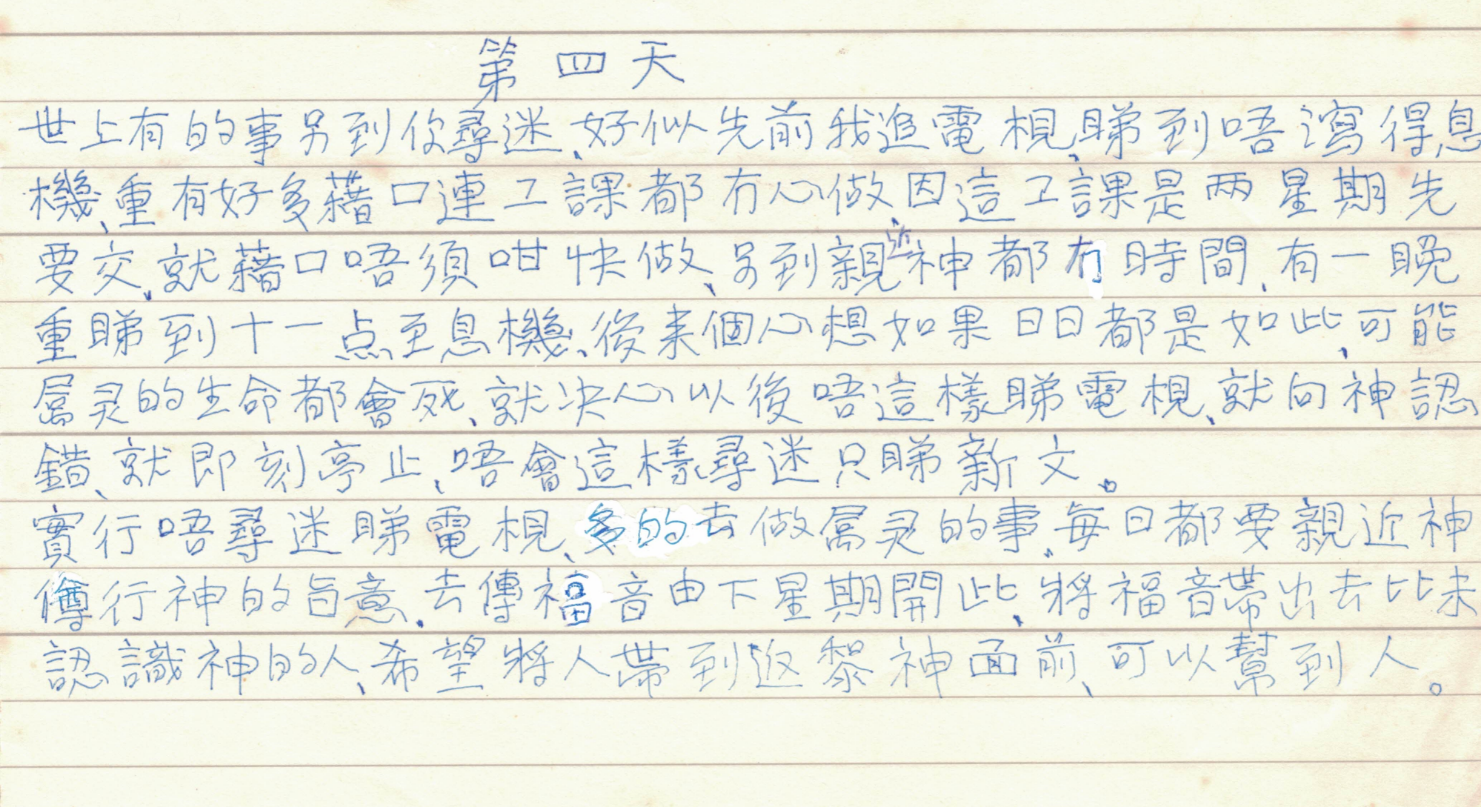 第四天
世上有的事另到你尋迷、好似先前我追電梘、睇到唔瀉得息
機、重有好多藉口連工課都冇心做、因這工課是两星期先
要交、就藉口唔須咁快做、另到親近神都冇時間、有一晚
重睇到十一点至息機、後来個心想如果日日都是如此、可能
屬灵的生命都會死、就决心以後唔這樣睇電梘、就向神認
錯、就即刻亭止、唔會這樣尋迷只睇新文。
實行唔尋迷睇電梘、多的去做屬灵的事、每日都要親近神
傅行神的旨意、去傳福音由下星期開此、將福音帶出去比未
認識神的人、希望將人帶到返黎神面前、可以幫到人。